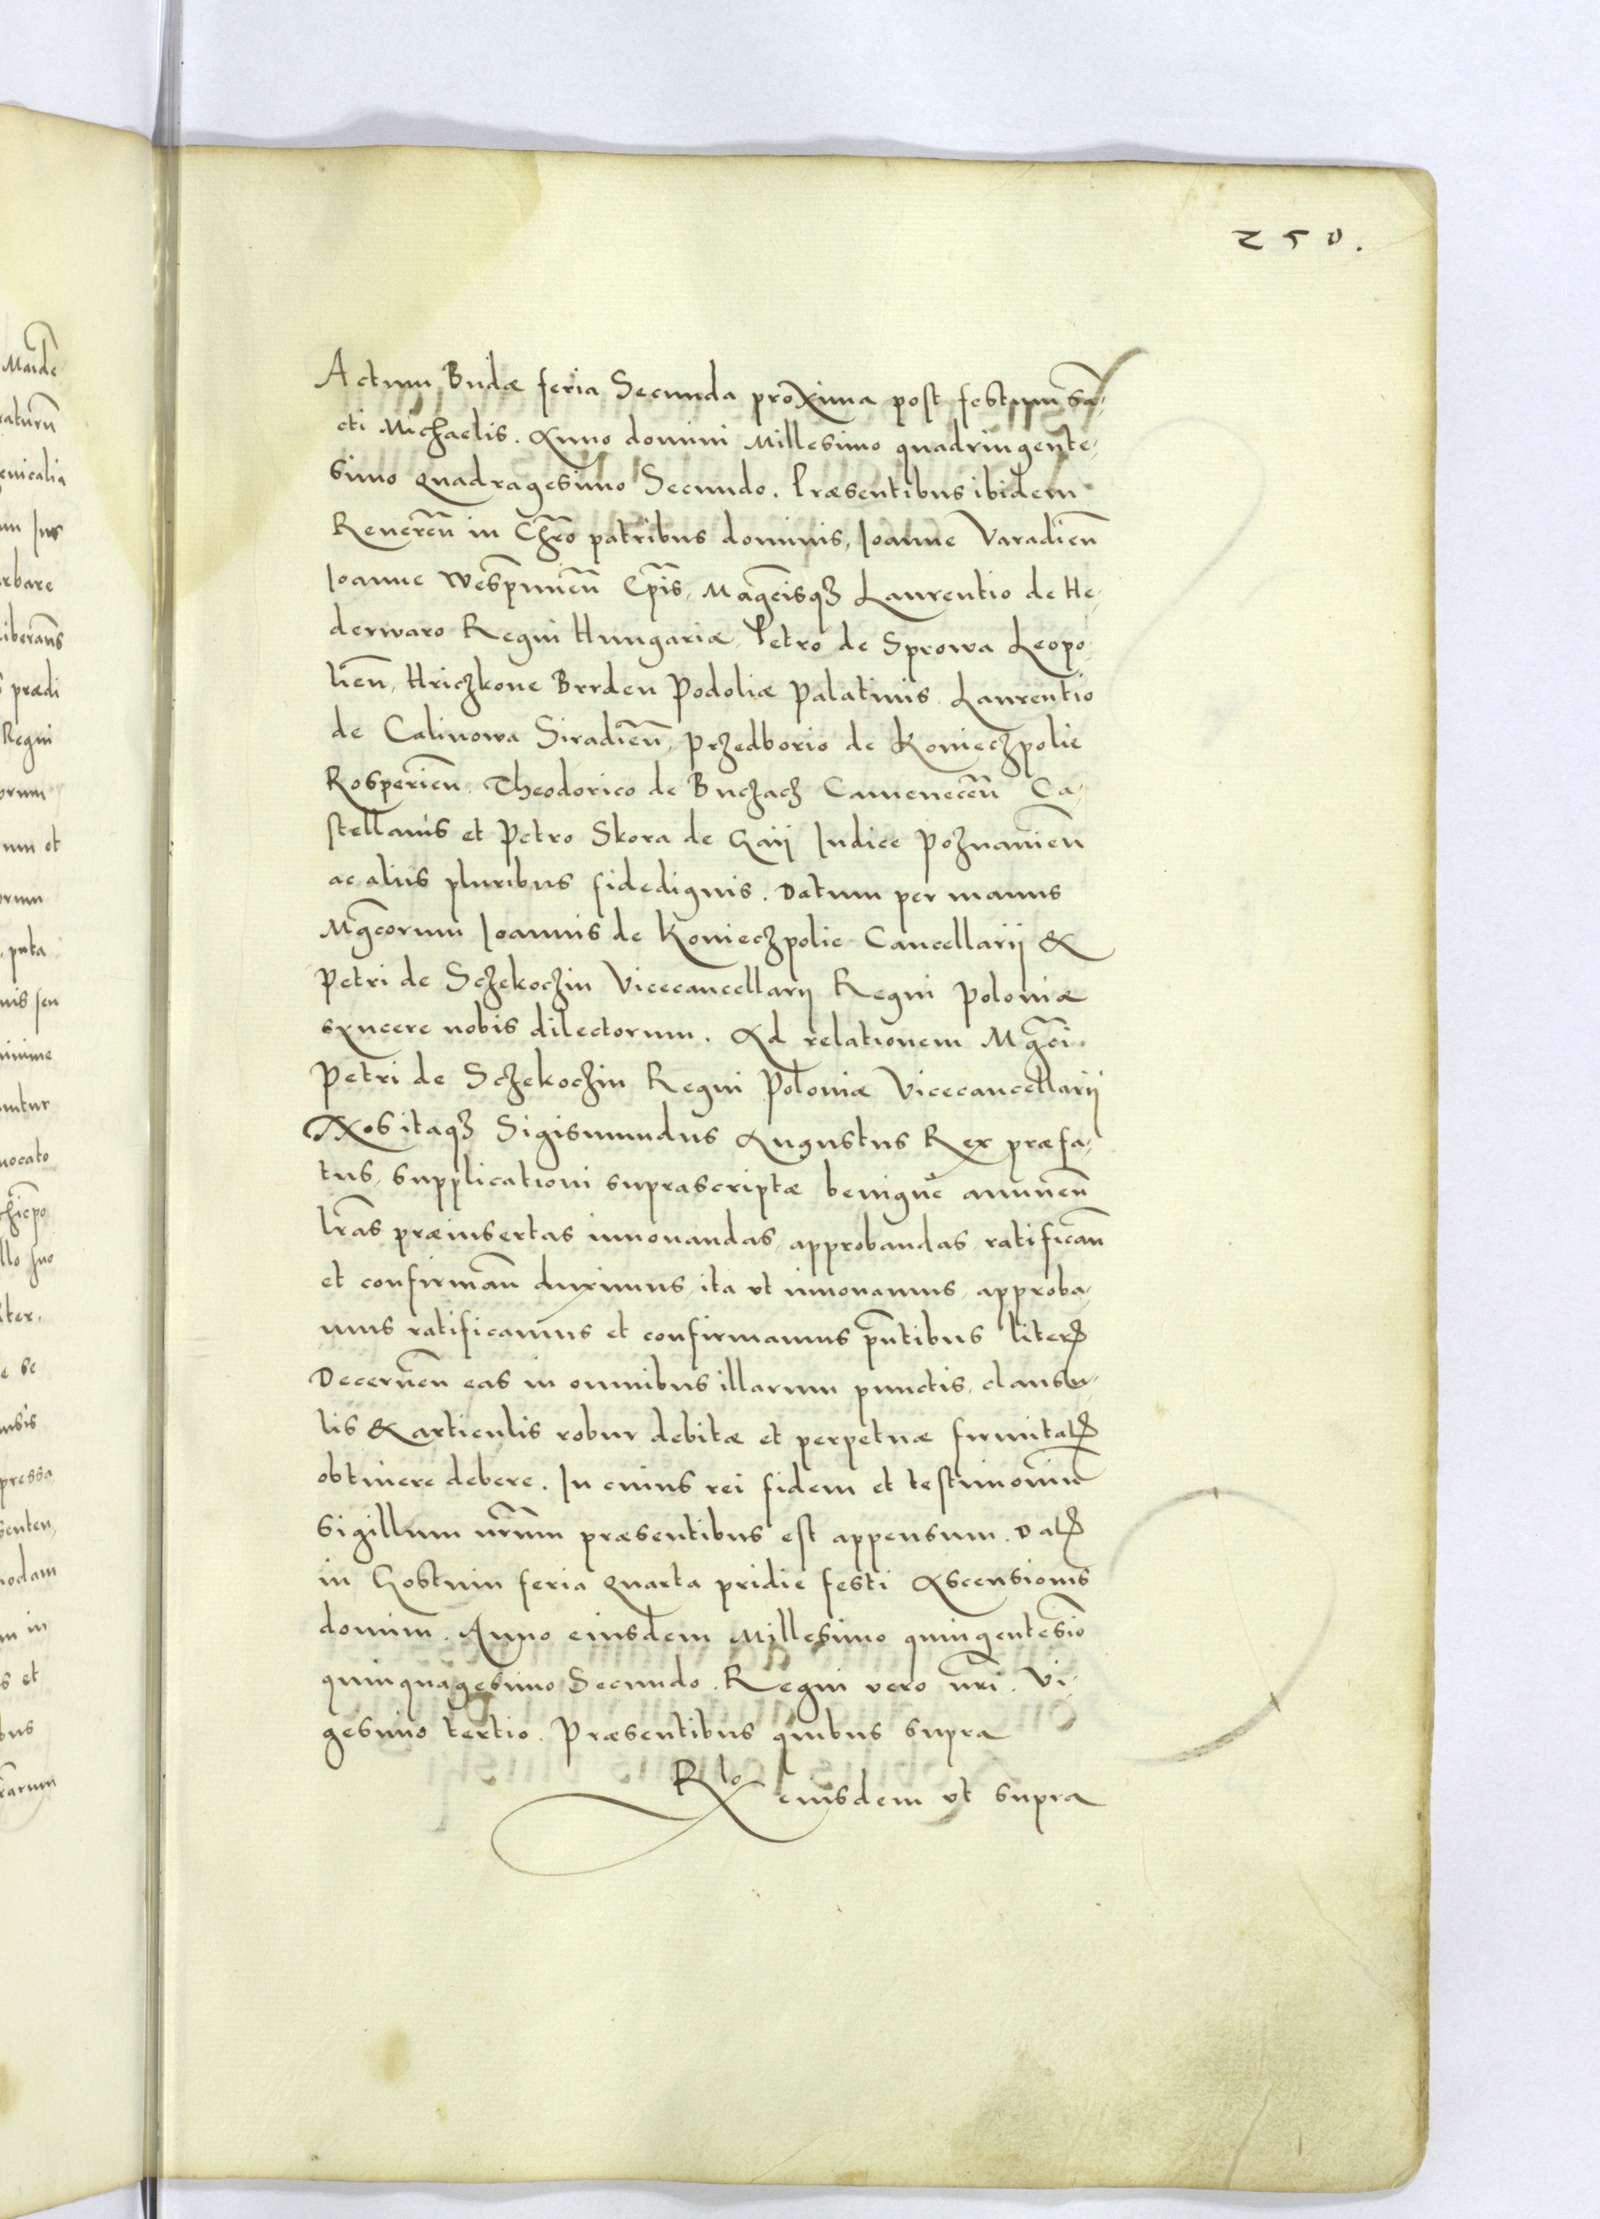 250.
Actum Budæ feria Secunda proxima post festum Sã-
cti Michaelis. Anno domini Millesimo quadringente-
simo quadragesimo Secundo. Præsentibus ibidem
Revereñ in Chro patribus dominis, Ioanne Varadieñ
Ioanne Wespmieñ Epis, Magcisqз Laurentio de He-
derwaro Regni Hungariæ, Petro de Sprowa Leopo-
lieñ, Hriczkone Brrden Podoliæ Palatinis Laurentio
de Calinowa Siradieñ, Przedborio de Konieczpolie
Rosperieñ. Theodorico de Buczacz Cameneceñ Ca-
stellanis et Petro Skora de Gaij Iudice Poznanieñ
ac aliis pluribus fidedignis. Datum per manus
Mgcorum Ioannis de Konieczpolie Cancellarij &
Petri de Sczekoczin Vicecancellarij Regni Poloniæ
syncere nobis dilectorum. Ad relationem Mgci
Petri de Sczekoczin Regni Poloniæ Vicecancellarij
Nos itaqз Sigismundus Augustus Rex præfa-
tus, supplicationi suprascriptæ benigne annueñ
lras præinsertas innouandas, approbandas, ratificañ
et confirmañ duximus, ita vt innouamus, approba-
mus ratificamus et confirmamus pntibus literꝭ
Decerneñ eas in omnibus illarum punctis, clausu-
lis & articulis robur debitæ et perpetuæ firmitatꝭ
obtinere debere. In cuius rei fidem et testimoniũ
Sigillum nrum præsentibus est appensum. Datꝭ
in Gostinin feria Quarta pridie festi Ascensionis
dominiꝫ. Anno eiusdem Millesimo quingentesio
quinquagesimo Secundo. Regni vero nri. Vi-
gesimo tertio. Præsentibus quibus supra
Rlo eiusdem vt supra